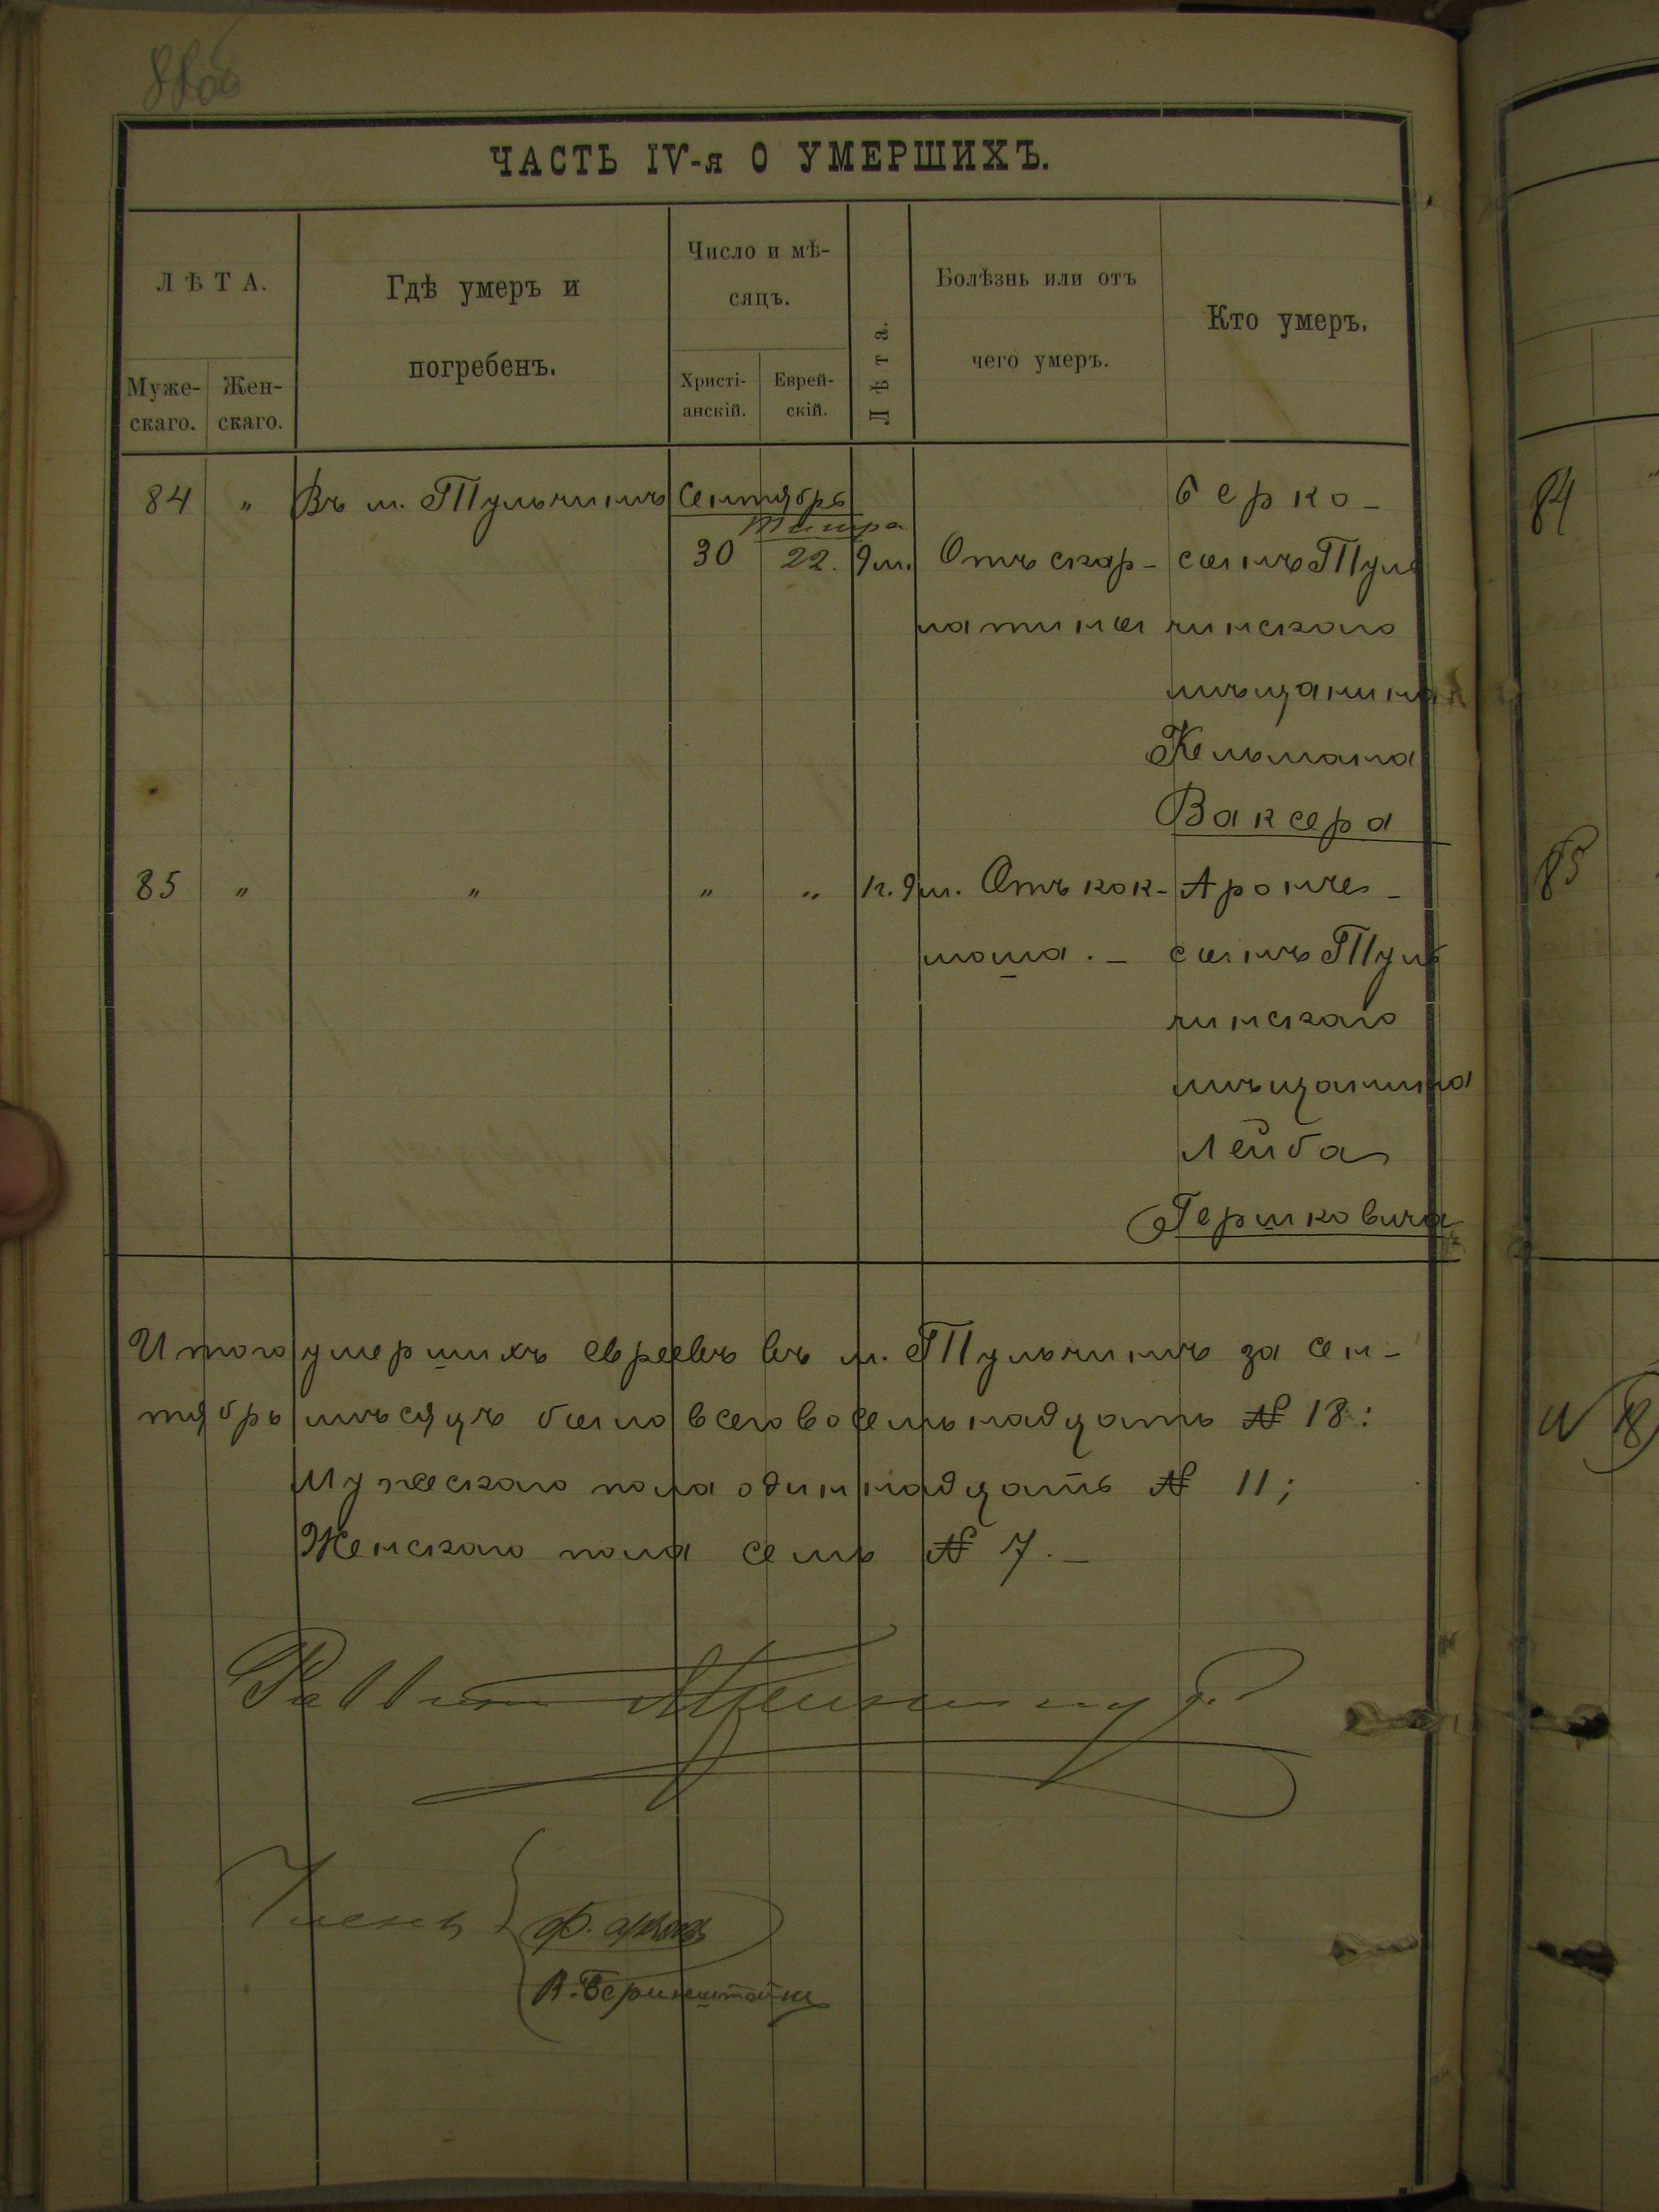 88об
ЧАСТЬ IV-я О УМЕРШИХЪ.
ЛѢТА.
Муже-
скаго.
Жен-
скаго.
Гдѣ умеръ и
погребенъ.
Число и мѣ-
сяцъ.
Христі-
анскій.
Еврей-
скій.
Лѣта.
Болѣзнь или отъ
чего умеръ.
Кто умеръ.
84 " Въ м. Тульчинѣ Сентябрь Берко –
Тишра
30 22. 9 м. Отъ скар- сынъ Туль
латины чинскаго
мѣщанина
Кельмана
Ваксера
85 " " " " 1 г. 9 м. Отъ кок- Арон –
люша. – сынъ Туль
чинскаго
мѣщанина
Лейба
Гершковича
Итого умершихъ евреевъ въ м. Тульчинѣ за сен-
тябрь мѣсяцъ было всего восемьнадцать № 18:
Мужескаго пола одиннадцать № 11;
Женскаго пола семь № 7. –
Раввинъ
Члены
Ф.
В. Беринштейн
84
85
18